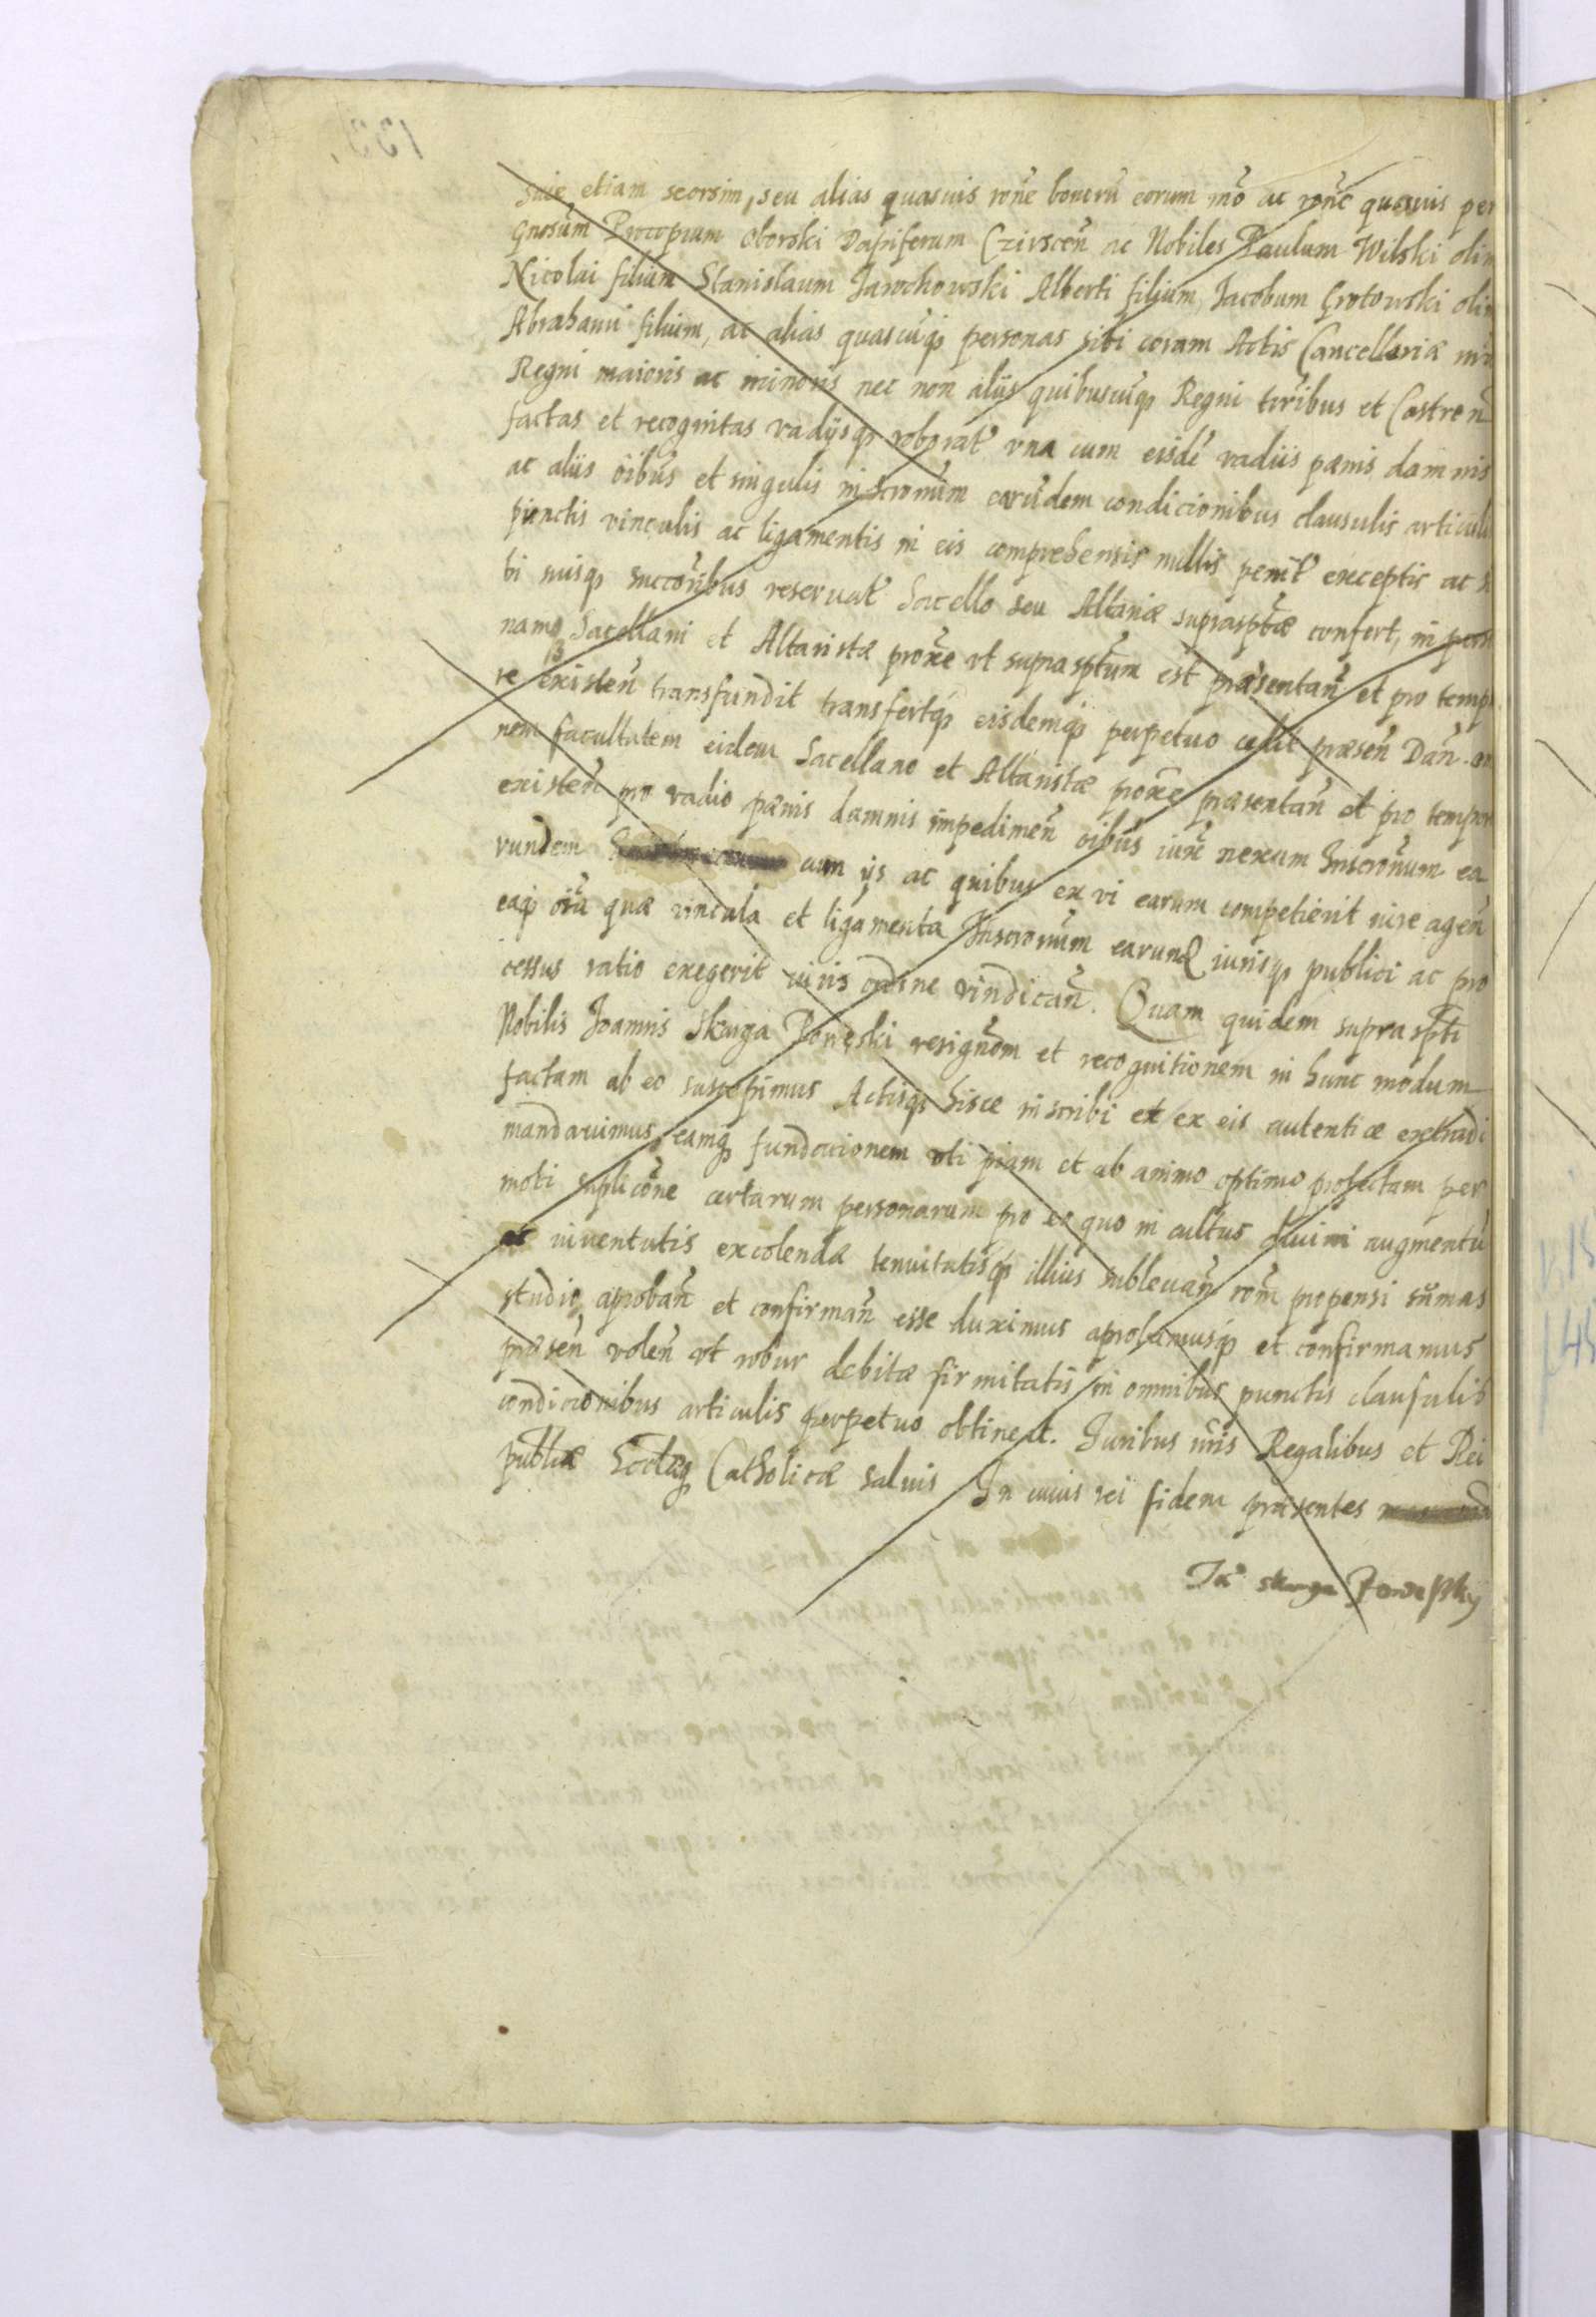 siue etiam seorsim, seu alias quasuis rõne bonorũ eorum mõ ac rõne quouis per
Gnosũm Procopium Oborski Dapiferum Czirsceñ ac Nobiles Paulum Wilski olim
Nicolai filium Stanislaum Jarochowski Alberti filium, Jacobum Grotowski olim
Abrahami filium, ac alias quascũqȝ personas sibi coram Actis Cancellariæ nrã
Regni maioris ac minoris nec non aliis quibuscũqȝ Regni terribus et Castreñ
factas et recognitas vadijsqȝ roborat̃ vna cum eisdẽ vadiis pænis damnis
ac aliis õibus et singulis inscronũm earũdem condicionibus clausulis articulis
punctis vinculis ac ligamentis in eis comprehensis nullis penit̃ exceptis ac si
bi suisqȝ succõribus reseruat̃ Sacello seu Altariæ suprasptæ confert, in perso
namqȝ Sacellani et Altaristæ proxe vt suprasptum est præsentañ et pro tempo
re existeñ transfundit transfertqȝ eisdemqȝ perpetuo cedit præseñ Dañ. om
nem facultatem eidem Sacellano et Altaristæ proxe præsentañ et pro tempore
existeñ pro vadio pænis damnis impedimeñ oibus iuxta nexum Inscronum ea
rundem cum ijs ac quibus ex vi earum competierit iure ageñ
eaqȝ oĩa quæ vincula et ligamenta Inscronum earund iurisqȝ publici ac pro
cessus ratio exegerit iuris ordine vindicañ. Quam quidem supraspti
Nobilis Joannis Skarga Poneski resignõm et recognitionem in hunc modum
factam ab eo suscepimus Actisqȝ hisce inscribi et ex eis autenticæ extradi
mandauimus, eamqȝ fundacionem vti piam et ab animo optimo profectam per
moti suplicõne certarum personarum pro eo quo in cultus diuini augmentũ
ac iuuentutis excolendæ tenuitatisqȝ illius subleuañ rõm propensi sũmas
studio, aprobañ et confirmañ esse duximus aprobamusqȝ et confirmamus
præseñ voleñ vt robur debitæ firmitatis in omnibus punctis clausulis
condicionibus articulis perpetuo obtineat. Juribus nris Regalibus et Rei
publicæ Ecclæqȝ Catholicæ saluis In cuius rei fidem præsentes
Jã skarga